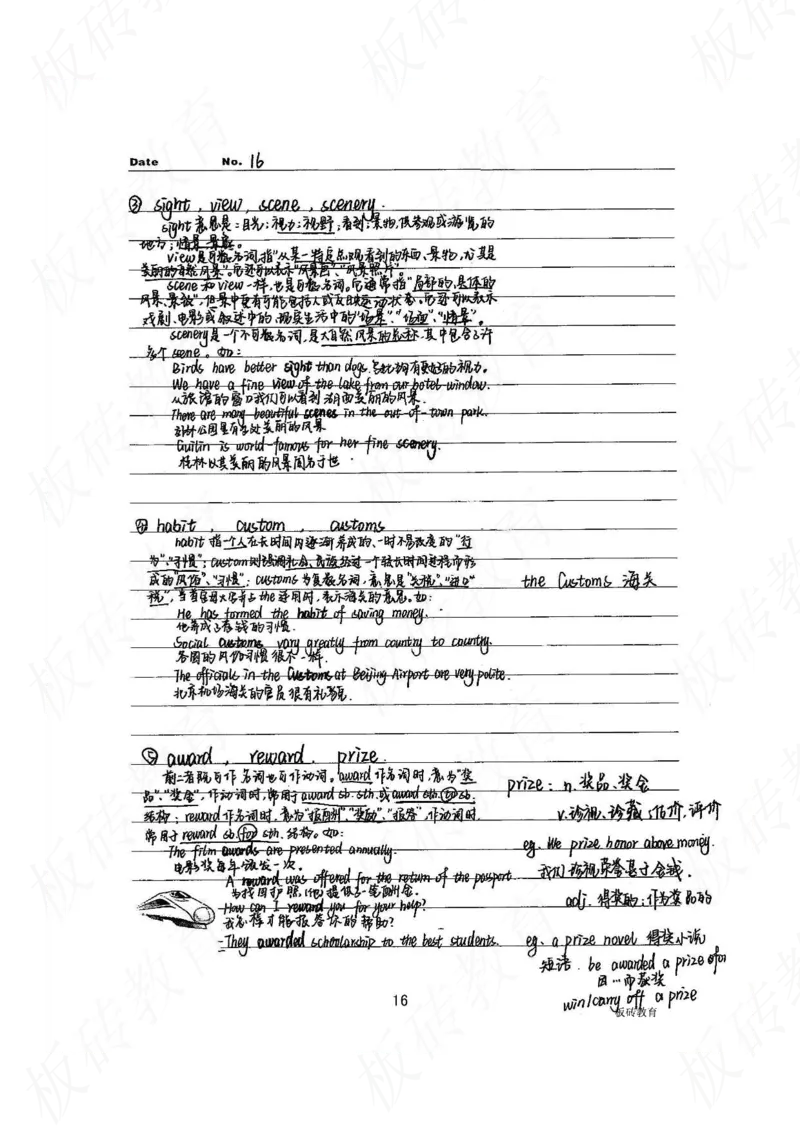 Date No. 16
③ sight, view, scene, scenery.
sight 意思是:目光;视力;视野;看到;景物,供参观或游览的
地方;情景,景感。
view是可数名词,指"从某一特定点观看到的东西、景物,尤其是
美丽的自然风景"。它还可以表示"风景画"、"风景照片"。
scene 和 view一样,也是可数名词。它通常指"局部的、具体的
风景、景致",但景中更有可能包括人或反映运动状态。它还可以表示
戏剧、电影或叙述中的、现实生活中的"场景"、"场面"、"情景"。
scenery是一个不可数名词,是大自然风景的总称,其中包含了许
多个scene。如:
Birds have better sight than dogs. 鸟比狗有更好的视力。
We have a fine view of the lake from our hotel window.
从旅馆的窗口我们可以看到湖面美丽的风景.
There are many beautiful scenes in the out-of-town park.
郊外公园里有多处美丽的风景
Guilin is world-famous for her fine scenery.
桂林以其美丽的风景闻名于世.
④ habit, custom, customs
habit 指一个人在长时间内逐渐养成的、一时不易改变的"行
为"、"习惯";custom则强调社会、民族经过一个较长时间进程而形
成的"风俗"、"习惯";customs为复数名词,意思是"关税"、"进口
税",当首字母大写并与the连用时,表示海关的意思。如:
the Customs 海关
He has formed the habit of saving money.
他养成了存钱的习惯.
Social customs vary greatly from country to country.
各国的风俗习惯很不一样.
The officials in the Customs at Beijing Airport are very polite.
北京机场海关的官员很有礼貌.
⑤ award, reward, prize.
前二者既可作名词也可作动词。award作名词时,意为"奖
品"、"奖金",作动词时,常用于award sb. sth.或award sth. to sb.
结构;reward作名词时,意为"报酬"、"奖励"、"报答",作动词时,
常用于reward sb. for sth.结构。如:
The film awards are presented annually.
电影奖每年颁发一次。
A reward was offered for the return of the passport.
为找回护照,(他)提供了一笔酬金.
How can I reward you for your help?
我怎样才能报答你的帮助?
They awarded scholarship to the best students.
prize: n. 奖品、奖金
v. 珍视、珍藏;估价,评价
eg. We prize honor above money.
我们珍视荣誉甚于金钱.
adj. 得奖的;作为奖品的
eg. a prize novel 得奖小说
短语. be awarded a prize for
因…而获奖
win/carry off a prize
16
板砖教育